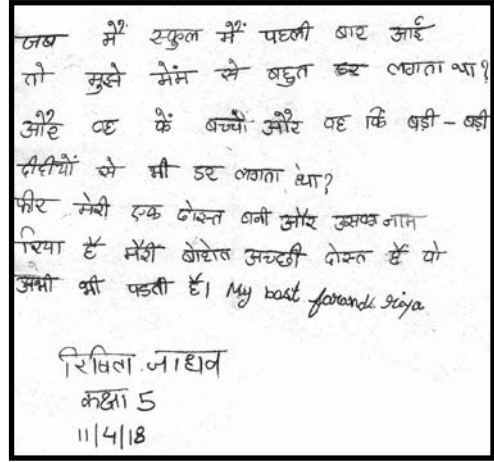 जब मैं स्कुल में पहली बार आई
तो मुझे मेंम से बहुत डर लगता था?
और वह कें बच्चों और वह कि बड़ी – बड़ी
दीदीयों से भी डर लगता था?
फीर मेरी एक दोस्त बनी और उसका नाम
रिया है मेरी बोहोत अच्छी दोस्त हैं वो
अभी भी पडती है। My bast farands riya.
रिषिता जाधव
कक्षा 5
11/4/18